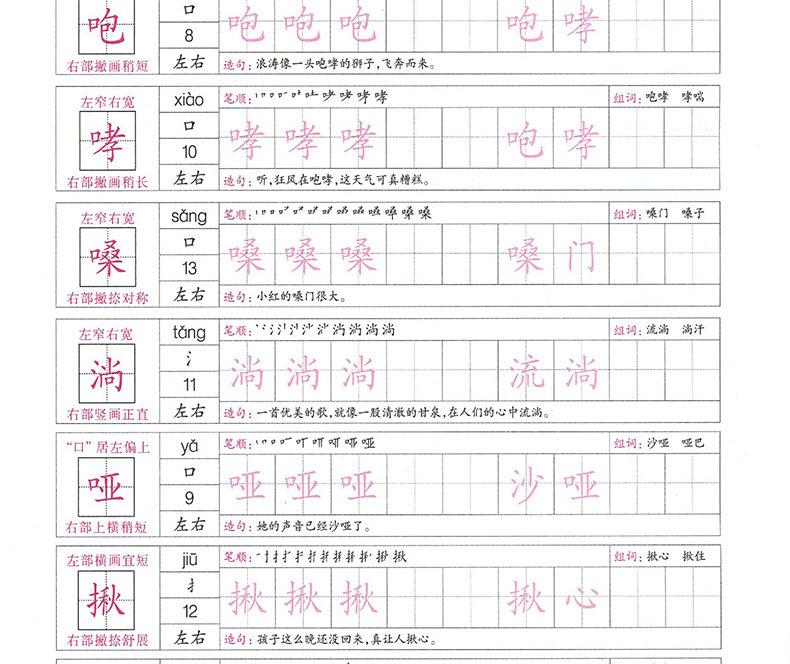 咆 口 咆 哮
8
右部撇画稍短 左右 造句：浪涛像一头咆哮的狮子，飞奔而来。
左窄右宽 xiào 笔顺： 组词：咆哮 哮喘
哮 口 哮 哮 哮 咆 哮
10
右部撇画稍长 左右 造句：听，狂风在咆哮，这天气可真糟糕。
左窄右宽 sǎng 笔顺： 组词：嗓门 嗓子
嗓 口 嗓 嗓 嗓 嗓 门
13
右部撇捺对称 左右 造句：小红的嗓门很大。
左窄右宽 tǎng 笔顺： 组词：流淌 淌汗
淌 氵 淌 淌 淌 流 淌
11
右部竖画正直 左右 造句：一首优美的歌，就像一股清澈的甘泉，在人们的心中流淌。
“口”居左偏上 yǎ 笔顺： 组词：沙哑 哑巴
哑 口 哑 哑 哑 沙 哑
9
右部上横稍短 左右 造句：她的声音已经沙哑了。
左部横画宜短 jiū 笔顺： 组词：揪心 揪住
揪 扌 揪 揪 揪 揪 心
12
右部撇捺舒展 左右 造句：孩子这么晚还没回来，真让人揪心。